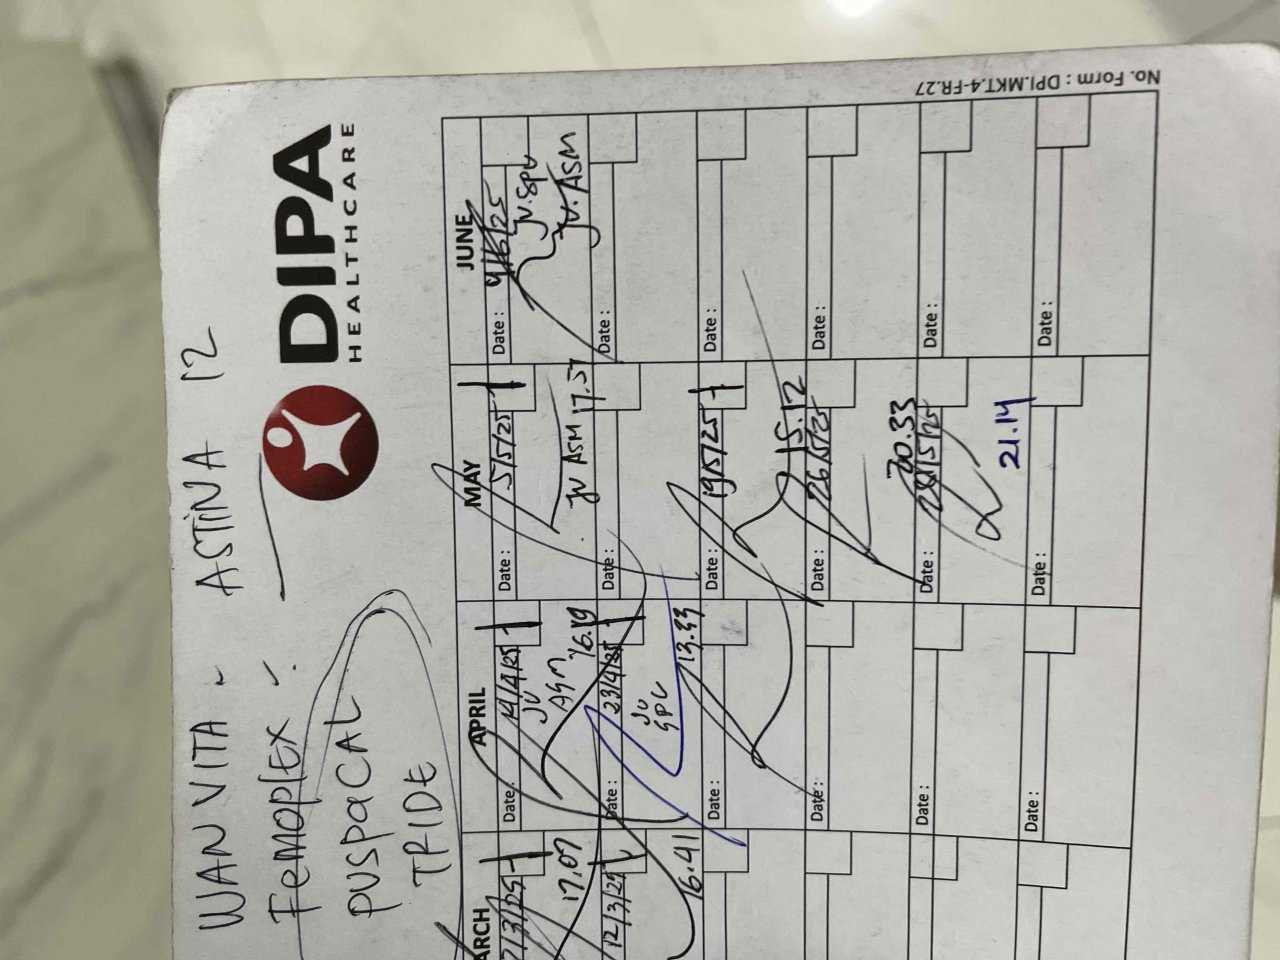 WAN VITA - ASTINA 12
FEMOPLEX -
PUSPACAL
TRIDE
DIPA
HEALTHCARE
No. Form : DPI.MKT.4-FR.27
ARCH
APRIL
MAY
JUNE
12/3/25
17.07
16.41
Date : 14/4/25
JV
ASM
16.19
Date : 23/4/25
JV
SPV
13.33
Date :
Date :
Date :
Date :
Date : 5/5/25
JV ASM 17.57
Date :
Date : 19/5/25
15.12
Date : 26/5/25
20.33
Date : 28/5/25
21.14
Date :
Date : 9/6/25
JV. SPV
JV. ASM
Date :
Date :
Date :
Date :
Date :